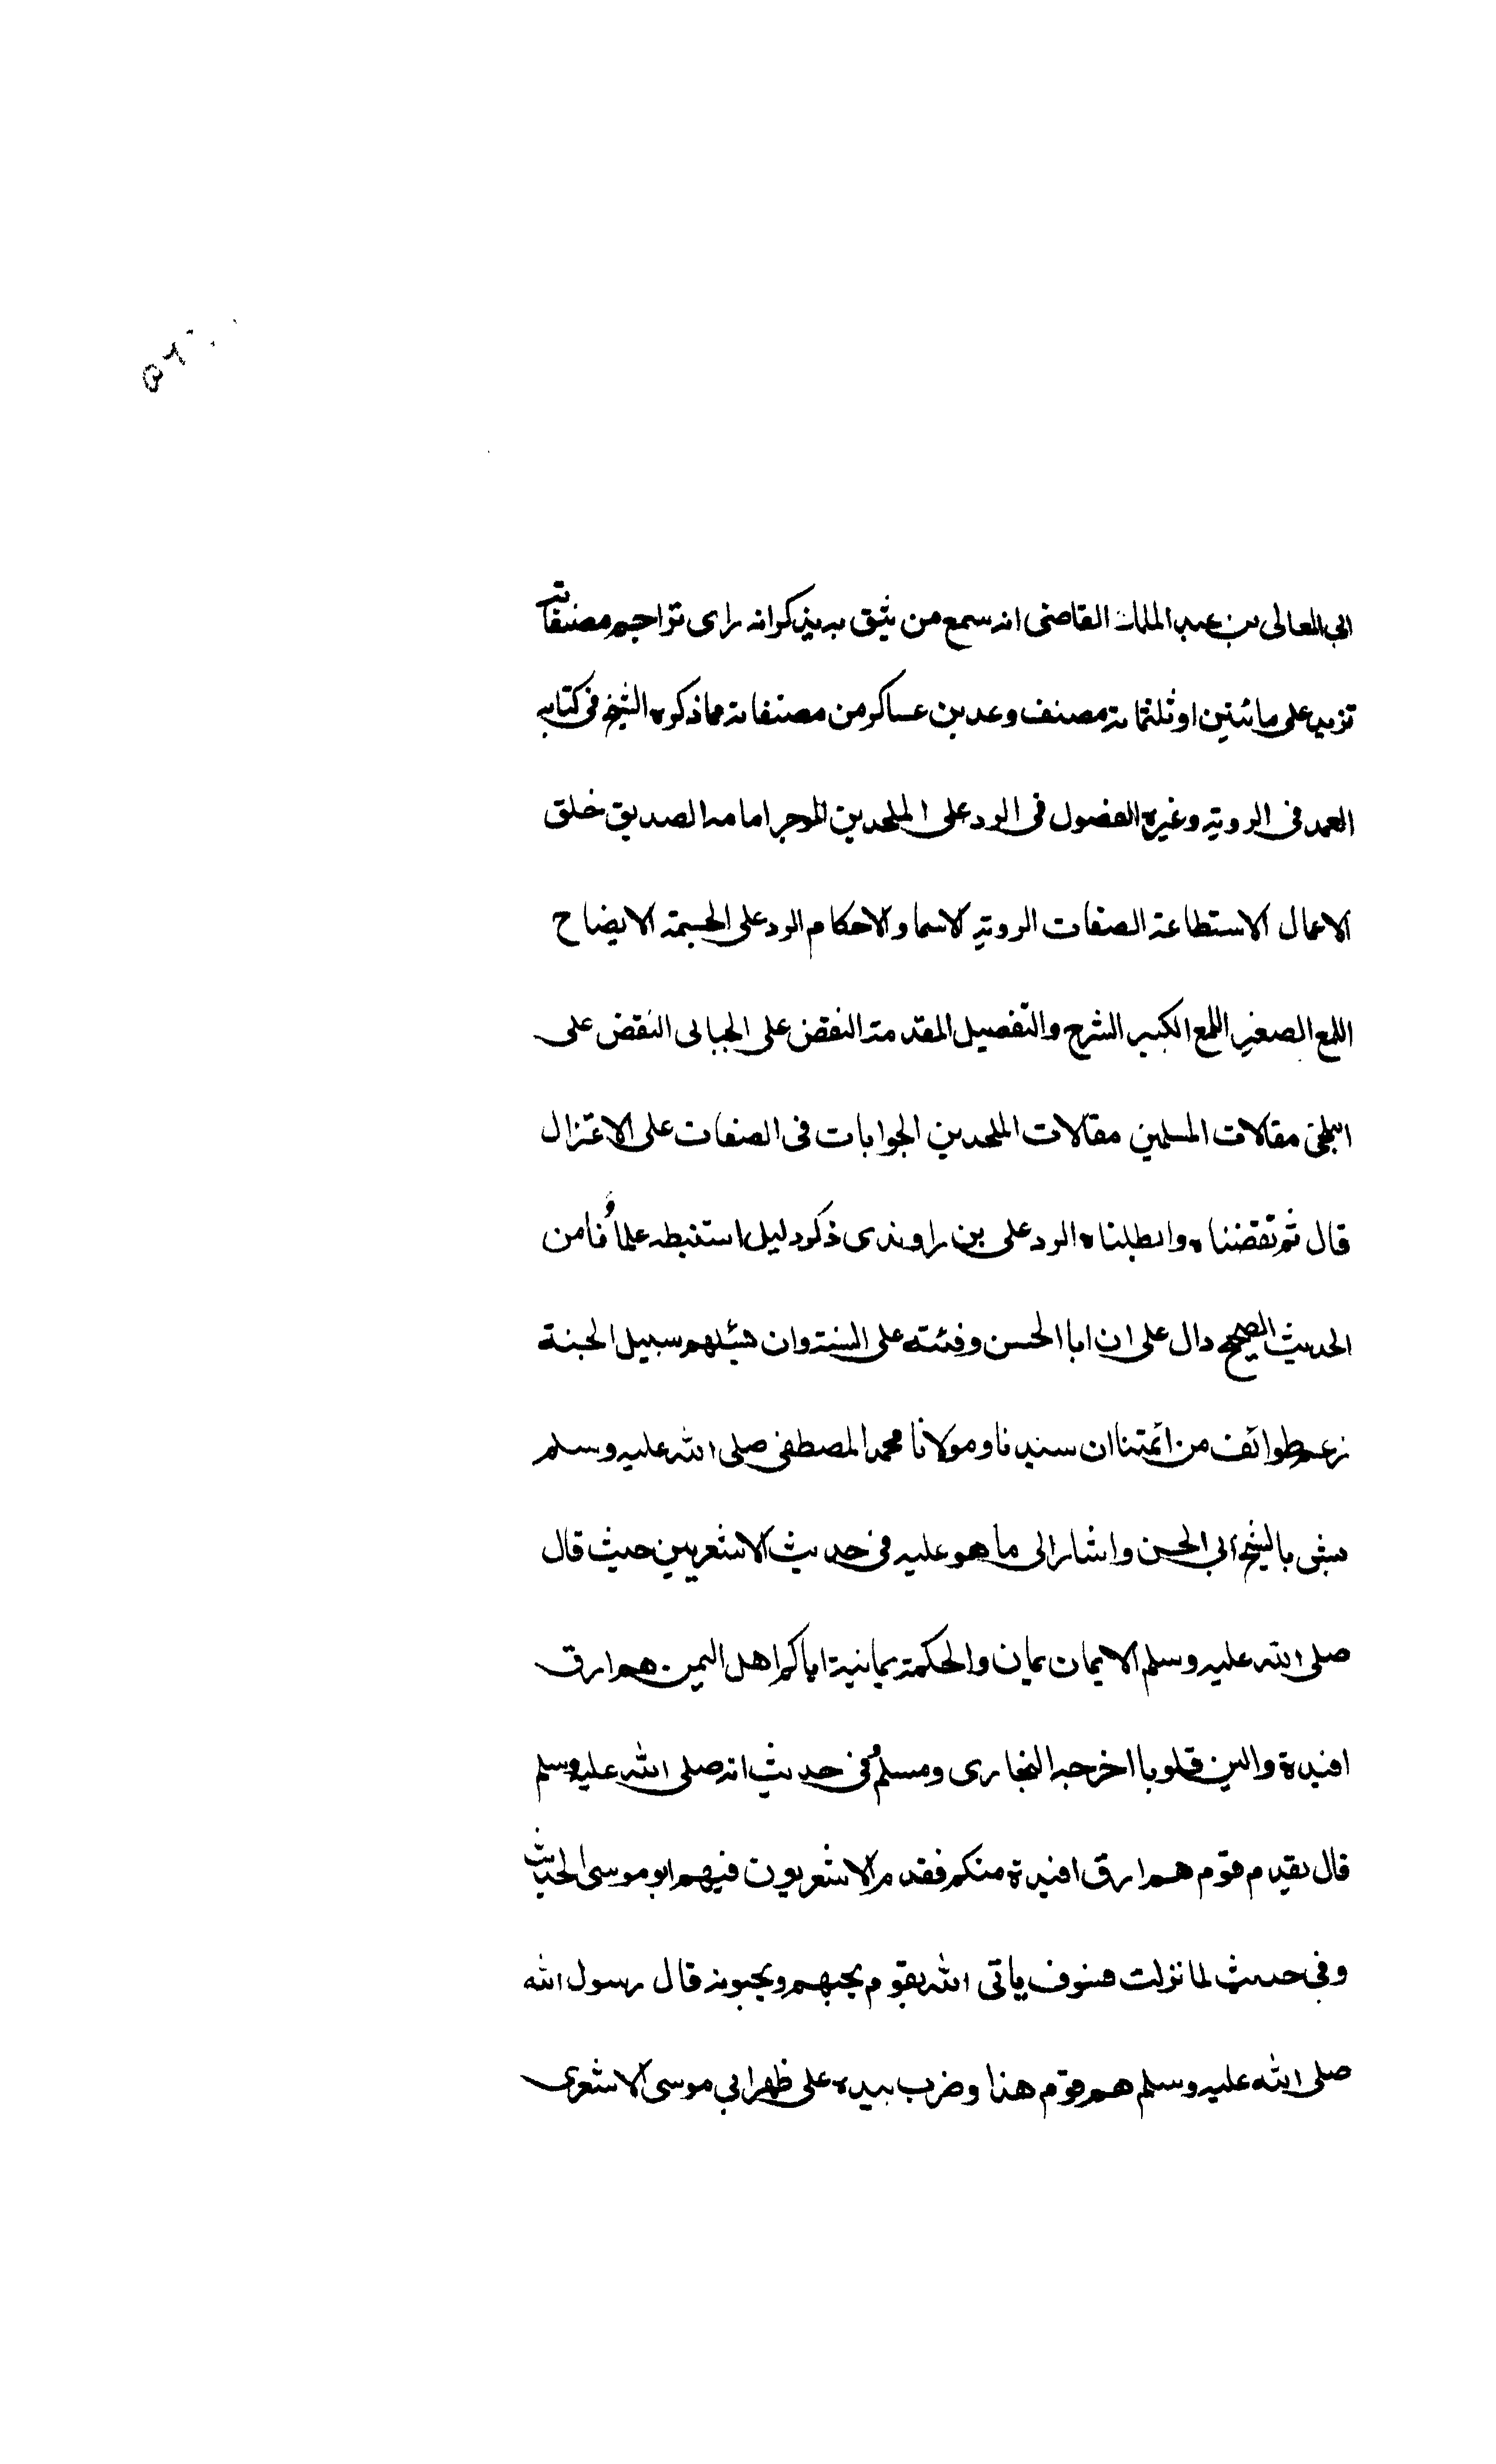 ابي المعالى بن عبد الملك القاضى انه سمع من يثق به يذكر انه راى تراجم مصنفاته
تزيد على مائتين او ثلثمائة مصنف وعد بن عساكر من مصنفاته مما ذكره الشيخ فى كتابه
العمد فى الروية وغيره الفصول فى الرد على الملحدين الموجر امامه الصديق خلق
الاعمال الاستطاعة الصفات الروية الاسما والاحكام الرد على المجسمة الايضاح
اللمع الصغير اللمع الكبير الشرح والتفصيل المقدمة النقض على الجبالى النقض على
البلخى مقالات المسلمين مقالات الملحدين الجوابات فى الصفات على الاعتزال
قال ثم نقضناه وابطلناه الرد على بن راوندى ذكر دليل استنبطه علماؤنا من
الحديث الصحيح دال على ان ابا الحسن وفئته على السنة وان سبيلهم سبيل الجنة
زعم طوائف من ائمتنا ان سيدنا ومولانا محمد المصطفى صلى الله عليه وسلم
بشر بالشيخ ابي الحسن واشار الى ما هو عليه فى حديث الاشعريين حيث قال
صلى الله عليه وسلم الايمان يمان والحكمة يمانية اتاكم اهل اليمن هم ارق
افيدة والين قلوبا اخرجه البخارى ومسلم وفى حديث انه صلى الله عليه وسلم
قال يقدم قوم هم ارق افيدة منكم فقدم الاشعريون فيهم ابو موسى الحديث
وفى حديث لما نزلت فسوف ياتى الله بقوم يحبهم ويحبونه قال رسول الله
صلى الله عليه وسلم هم قوم هذا وضرب بيده على ظهر ابي موسى الاشعرى